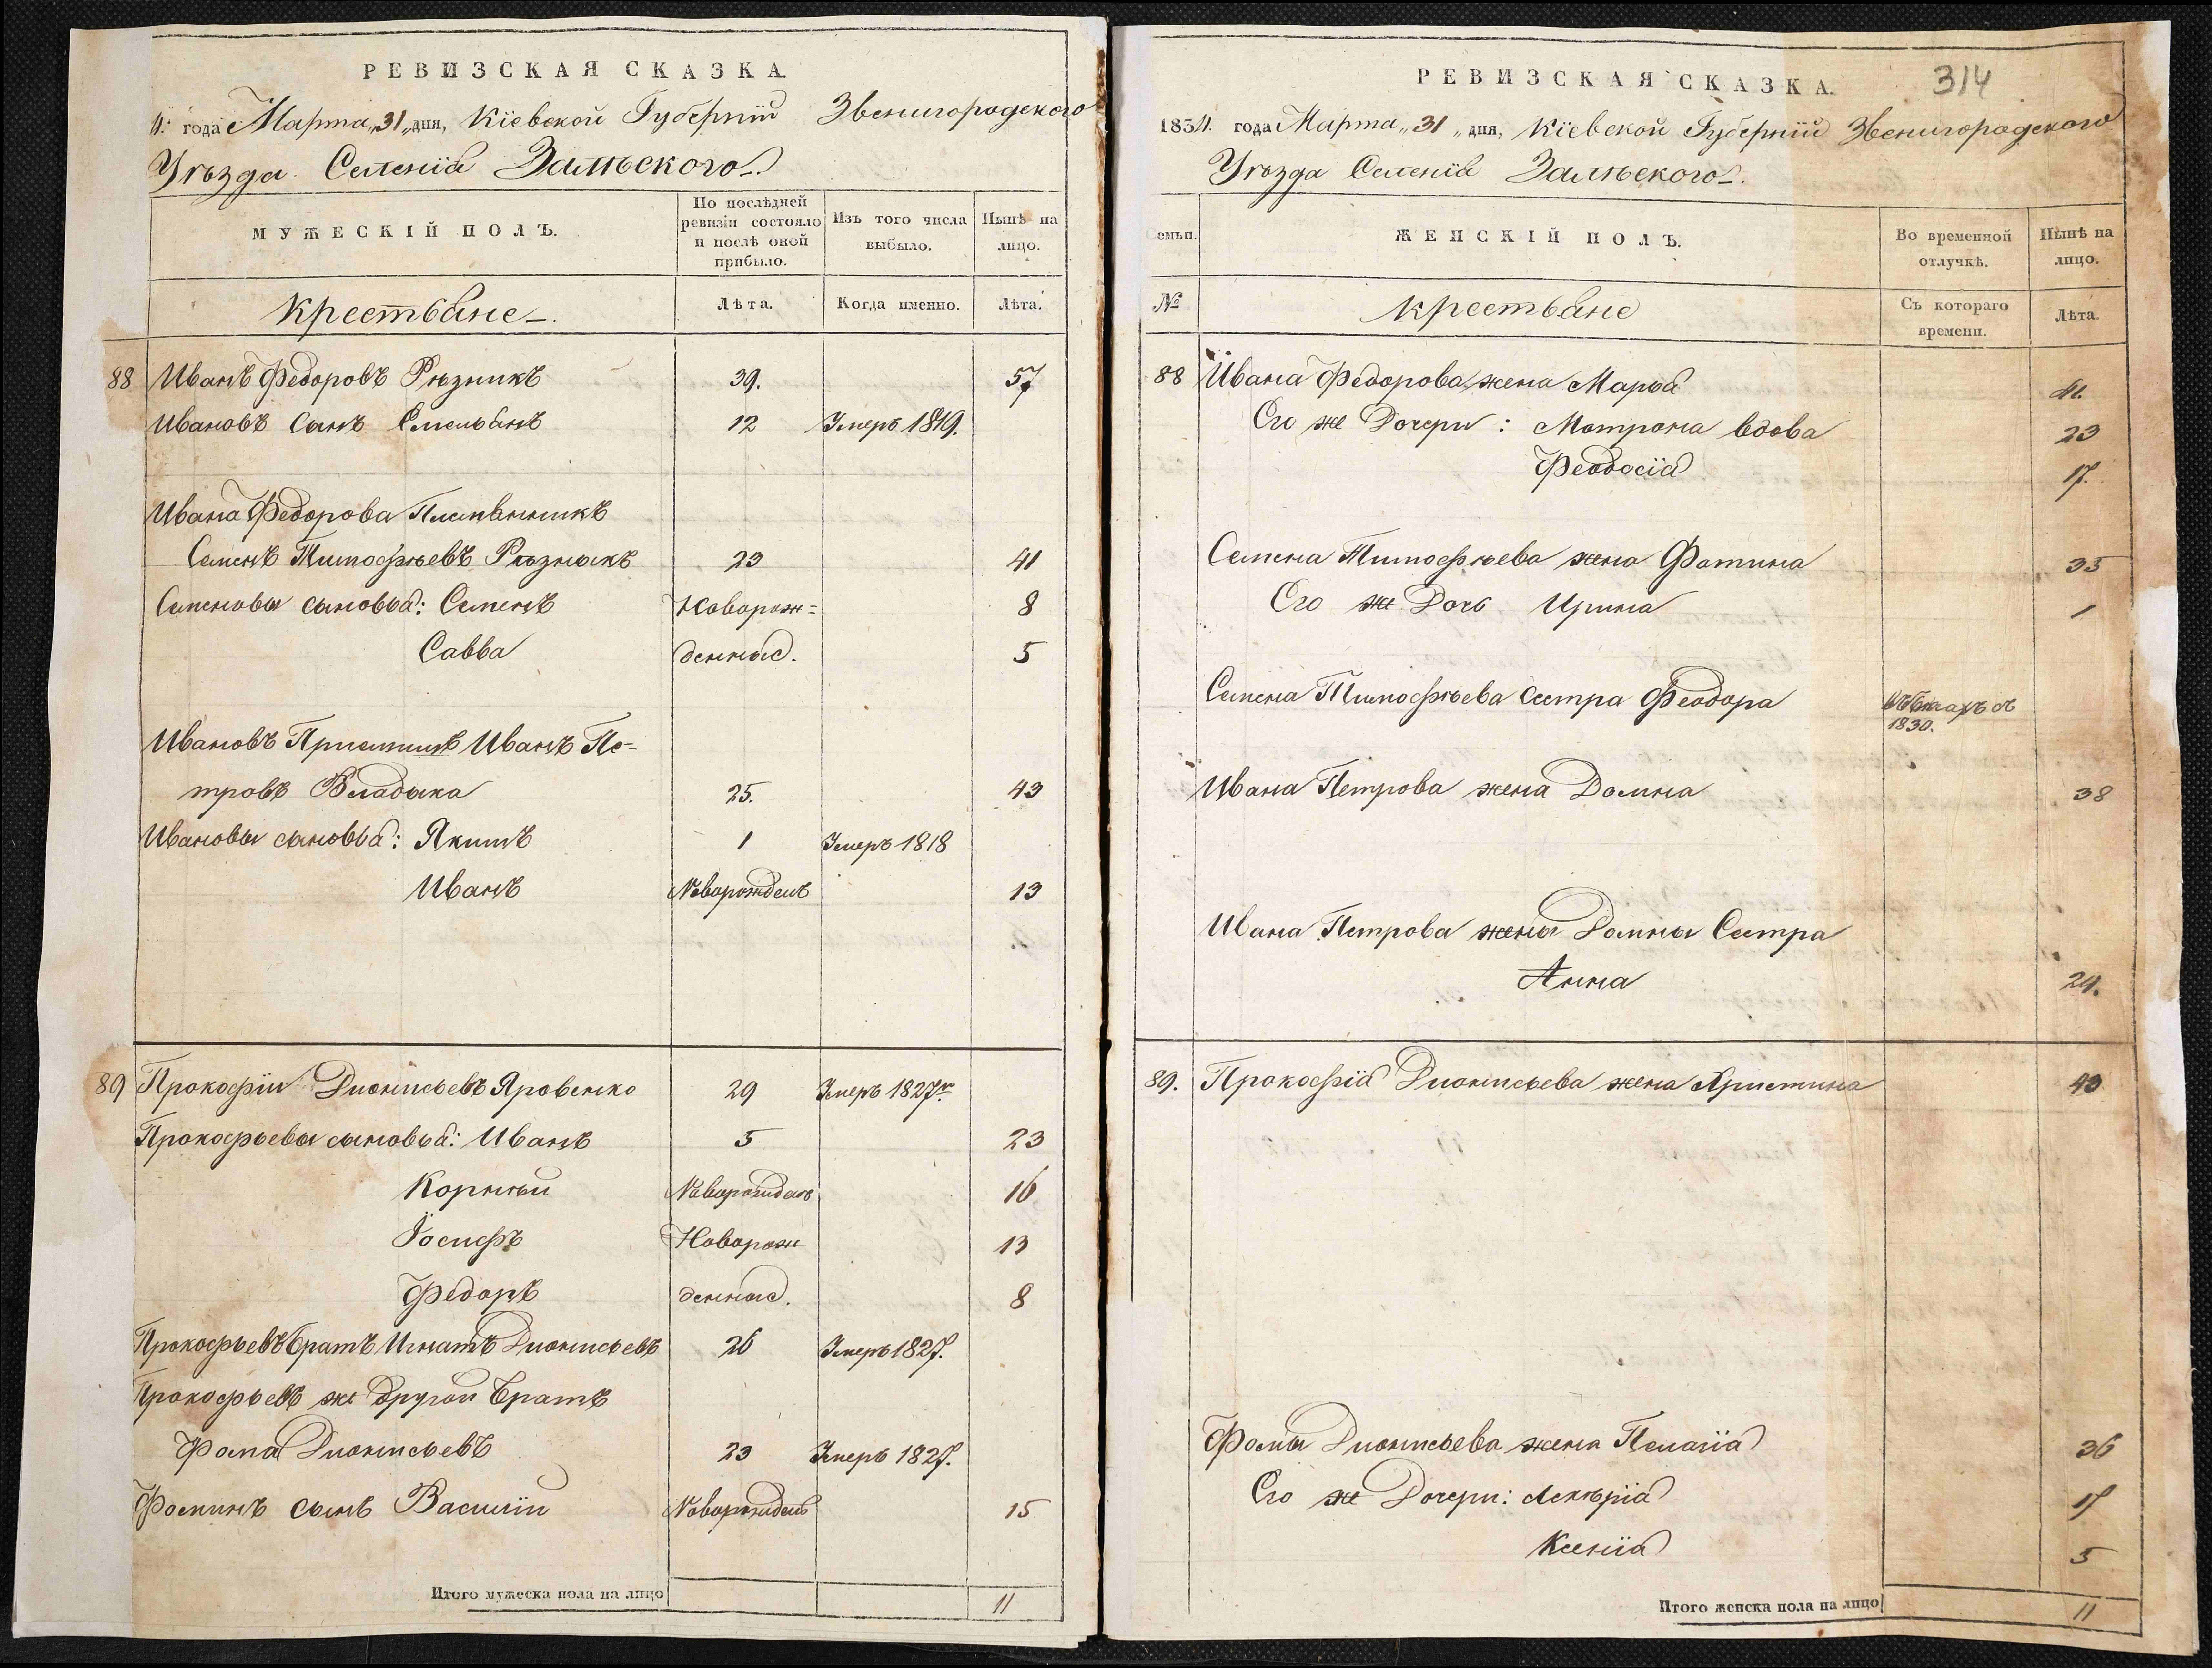 РЕВИЗСКАЯ СКАЗКА.
4. года Марта „31„ дня, Кіевской Губерніи Звенигородского
Уѣзда Селенія Залѣского.
МУЖЕСКІЙ ПОЛЪ.
По послѣдней ревизіи состояло и послѣ оной прибыло.
Изъ того числа выбыло.
Нынѣ на лицо.
Крестьяне.
Лѣта.
Когда именно.
Лѣта.
88 Иванъ Федоровъ Рѣзникъ 39. 57
Ивановъ Сынъ Емельянъ 12 Умеръ 1819.
Ивана Федорова Племянникъ
Семенъ Тимофѣевъ Рѣзникъ 23 41
Семеновы сыновья: Семенъ Новорож= 8
Савва денныя. 5
Ивановъ Приемышъ Иванъ Пе=
тровъ Владыка 25. 43
Ивановы сыновья: Якимъ 1 Умеръ 1818
Иванъ Новорожденъ 13
89 Прокофіи Дионисьевъ Яровенко 29 Умеръ 1827го
Прокофьевы сыновья: Иванъ 5 23
Корнѣи Новорожденъ 16
Іосифъ Новорож 13
Федоръ денныя. 8
Прокофьевъ братъ Игнатъ Дионисьевъ 26 Умеръ 1827.
Прокофьевъ же другой братъ
Фома Дионисьевъ 23 Умеръ 1827.
Фоминъ сынъ Василіи Новорожденъ 15
Итого мужеска пола на лицо 11
РЕВИЗСКАЯ СКАЗКА. 314
1834. года Марта „31„ дня, Кіевской Губерніи Звенигородского
Уѣзда Селенія Залѣского.
Семьи.
ЖЕНСКІЙ ПОЛЪ.
Во временной отлучкѣ.
Нынѣ на лицо.
№
Крестьяне
Съ котораго времени.
Лѣта.
88 Ивана Федорова жена Марья 41.
Его же Дочери: Мотрона вдова 23
Феодосія 17.
Семена Тимофѣева жена Фотина 35
Его же Дочь Ирина 1
Семена Тимофѣева Сестра Феодора съ
1830.
Ивана Петрова жена Домна 38
Ивана Петрова жены Домны Сестра
Анна 24.
89. Прокофія Дионисьева жена Христина 43
Фомы Дионисьева жена Пелагія 36
Его же Дочери: Лекѣрія 17
Ксенія 5
Итого женска пола на лицо 11